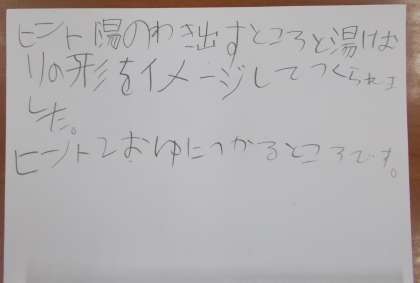 ヒント陽のわき出すところと湯けむ
りの形をイメージしてつくられま
した。
ヒント2おゆにつかるところです。